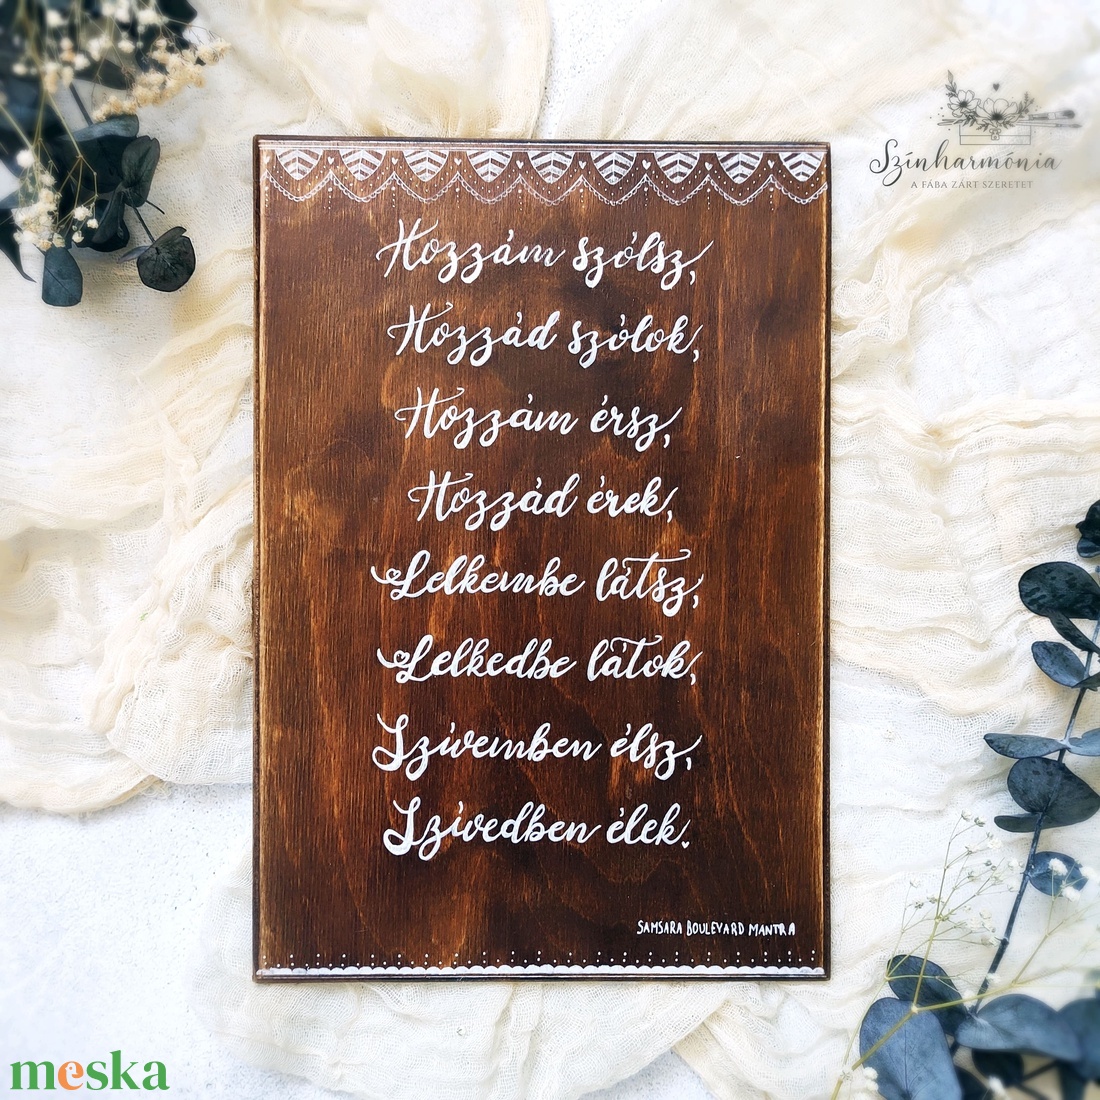 Színharmónia
A FÁBA ZÁRT SZERETET
Hozzám szólsz,
Hozzád szólok,
Hozzám érsz,
Hozzád érek,
Lelkembe látsz,
Lelkedbe látok,
Szívemben élsz,
Szívedben élek.
SAMSARA BOULEVARD MANTRA
meska